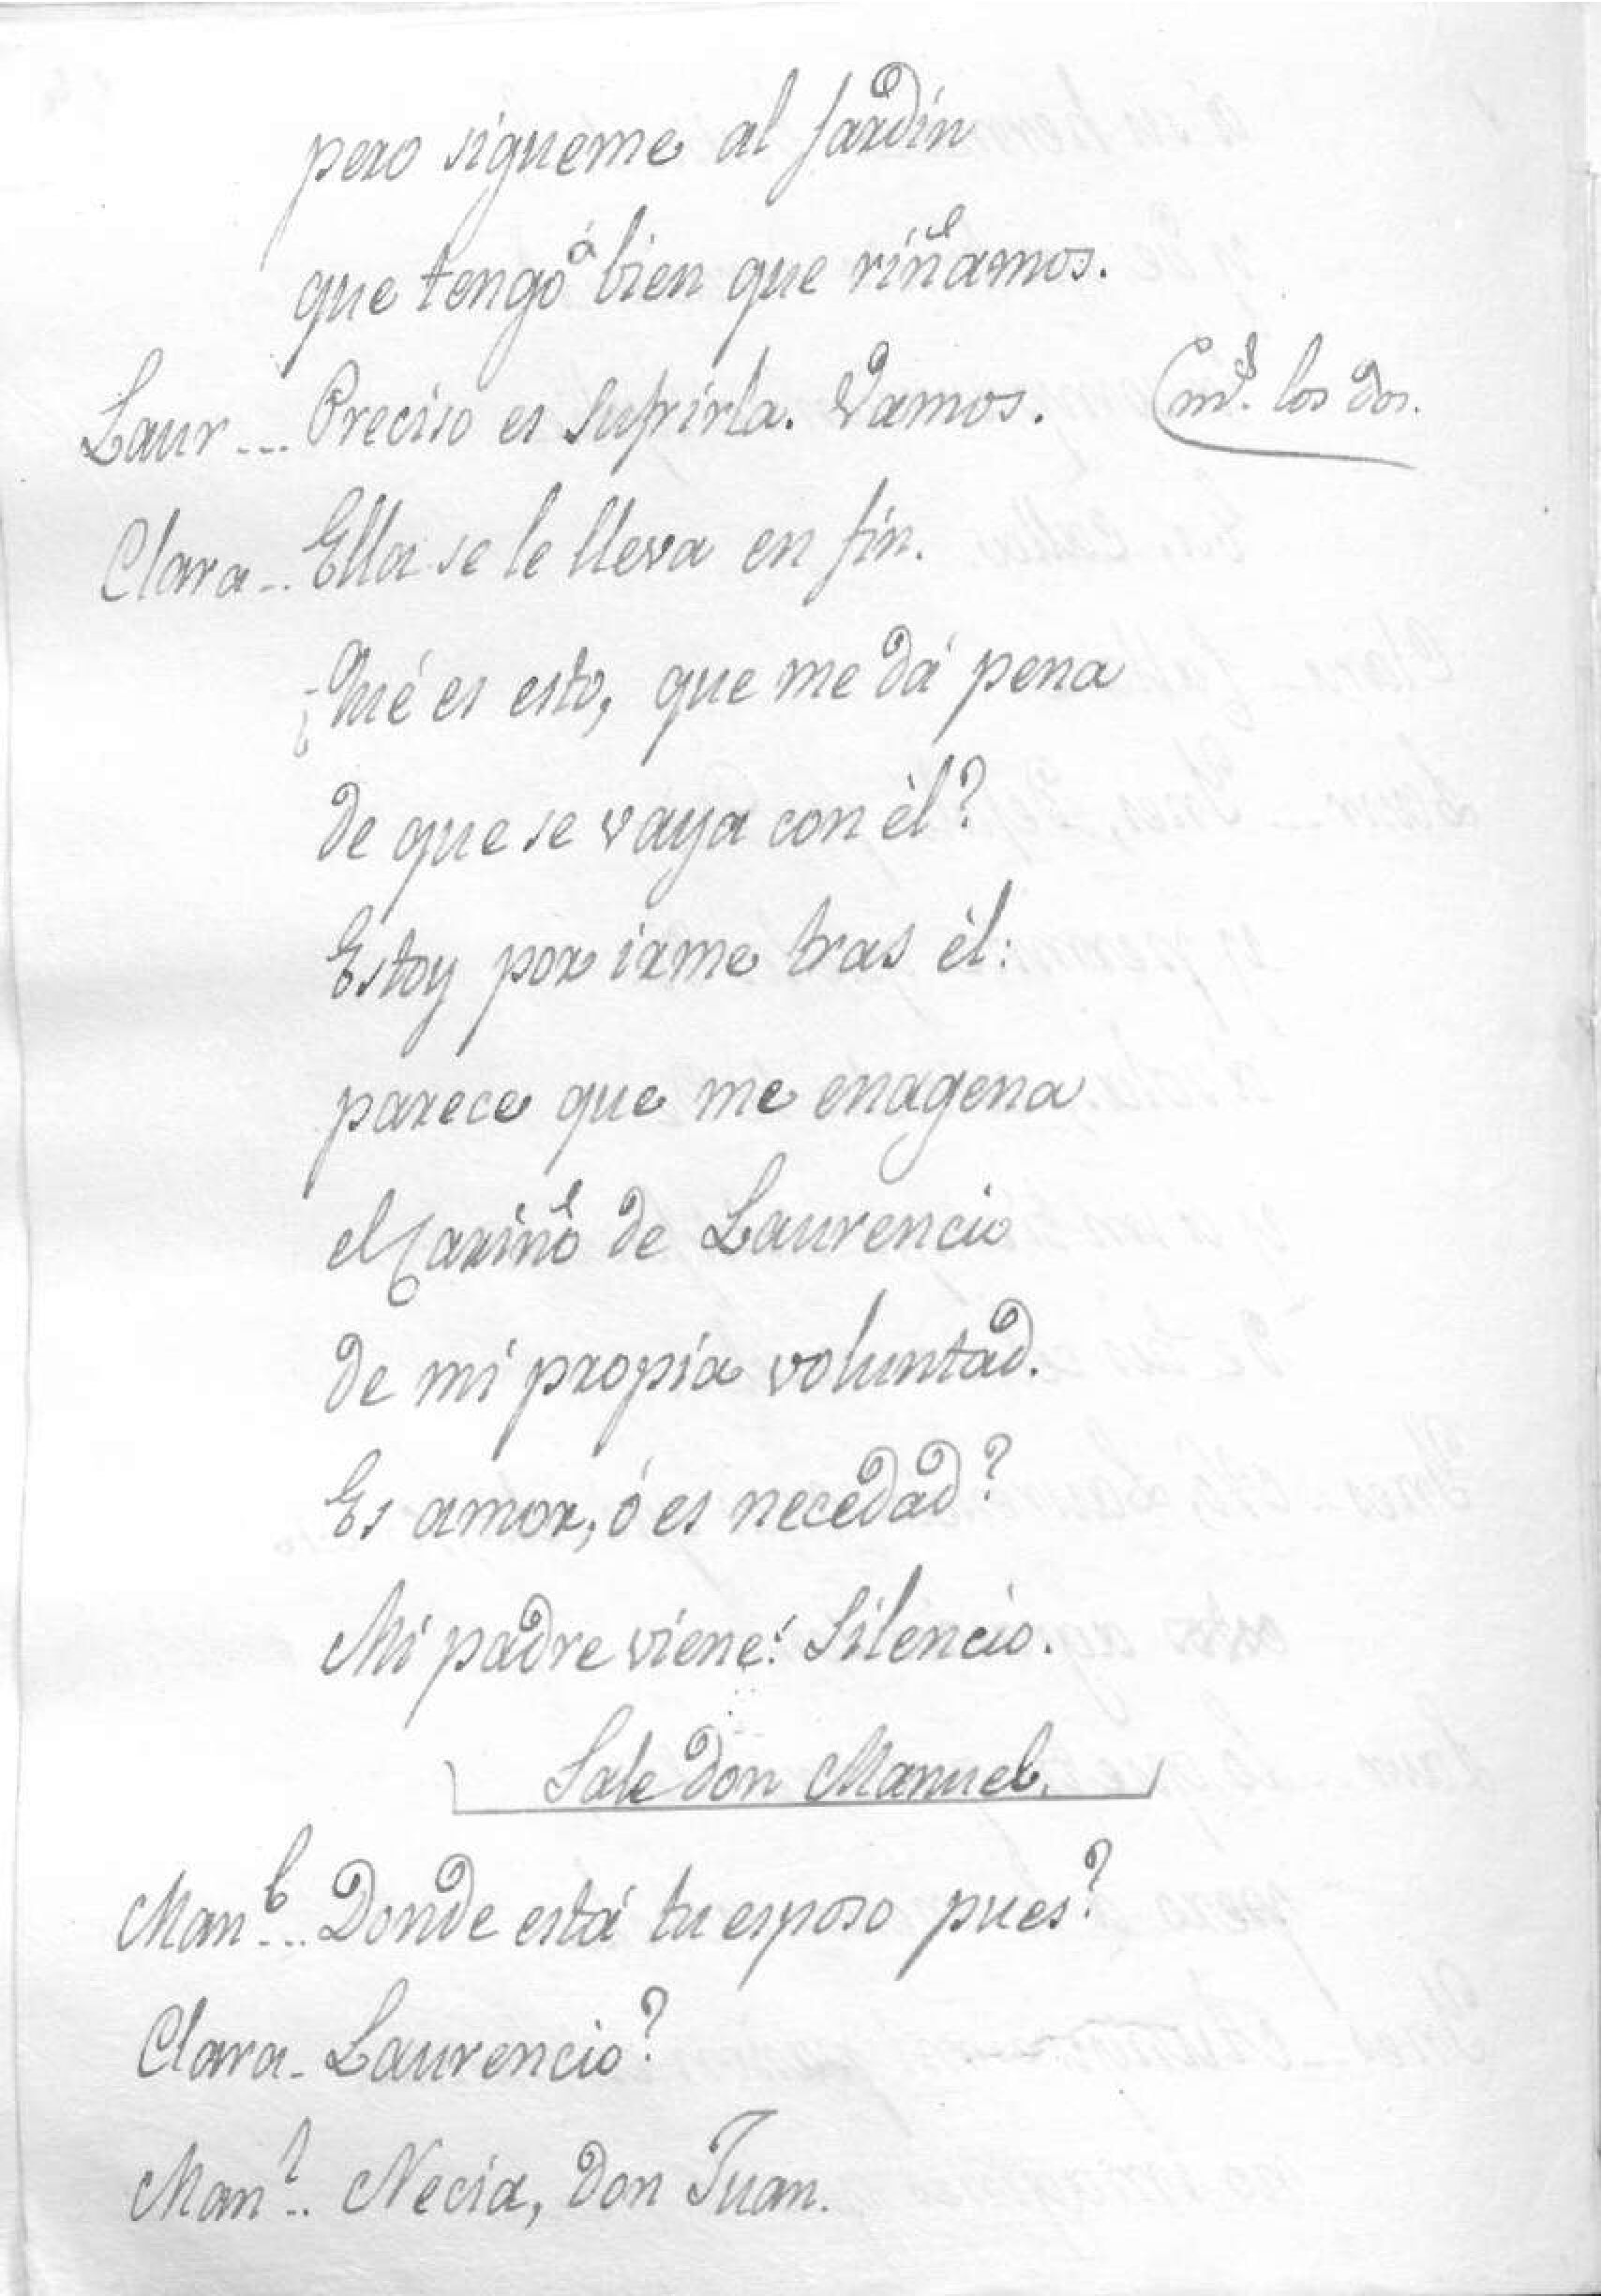 pero sigueme al Jardin
que tengo á bien que riñamos.
Laur... Preciso es sufrirla. Vamos. los dos.
Clara... Ella se le lleva en fin.
¿Qué es esto, que me dá pena
de que se vaya con èl?
Estoy por irme tras èl:
parece que me enagena
el Cariño de Laurencio
de mi propia voluntad.
Es amor, ó es necedad?
Mi padre viene! Silencio.
Sale don Manuel.
Man.l... Donde está tu esposo pues?
Clara - Laurencio?
Man.l.. Necia, Don Juan.